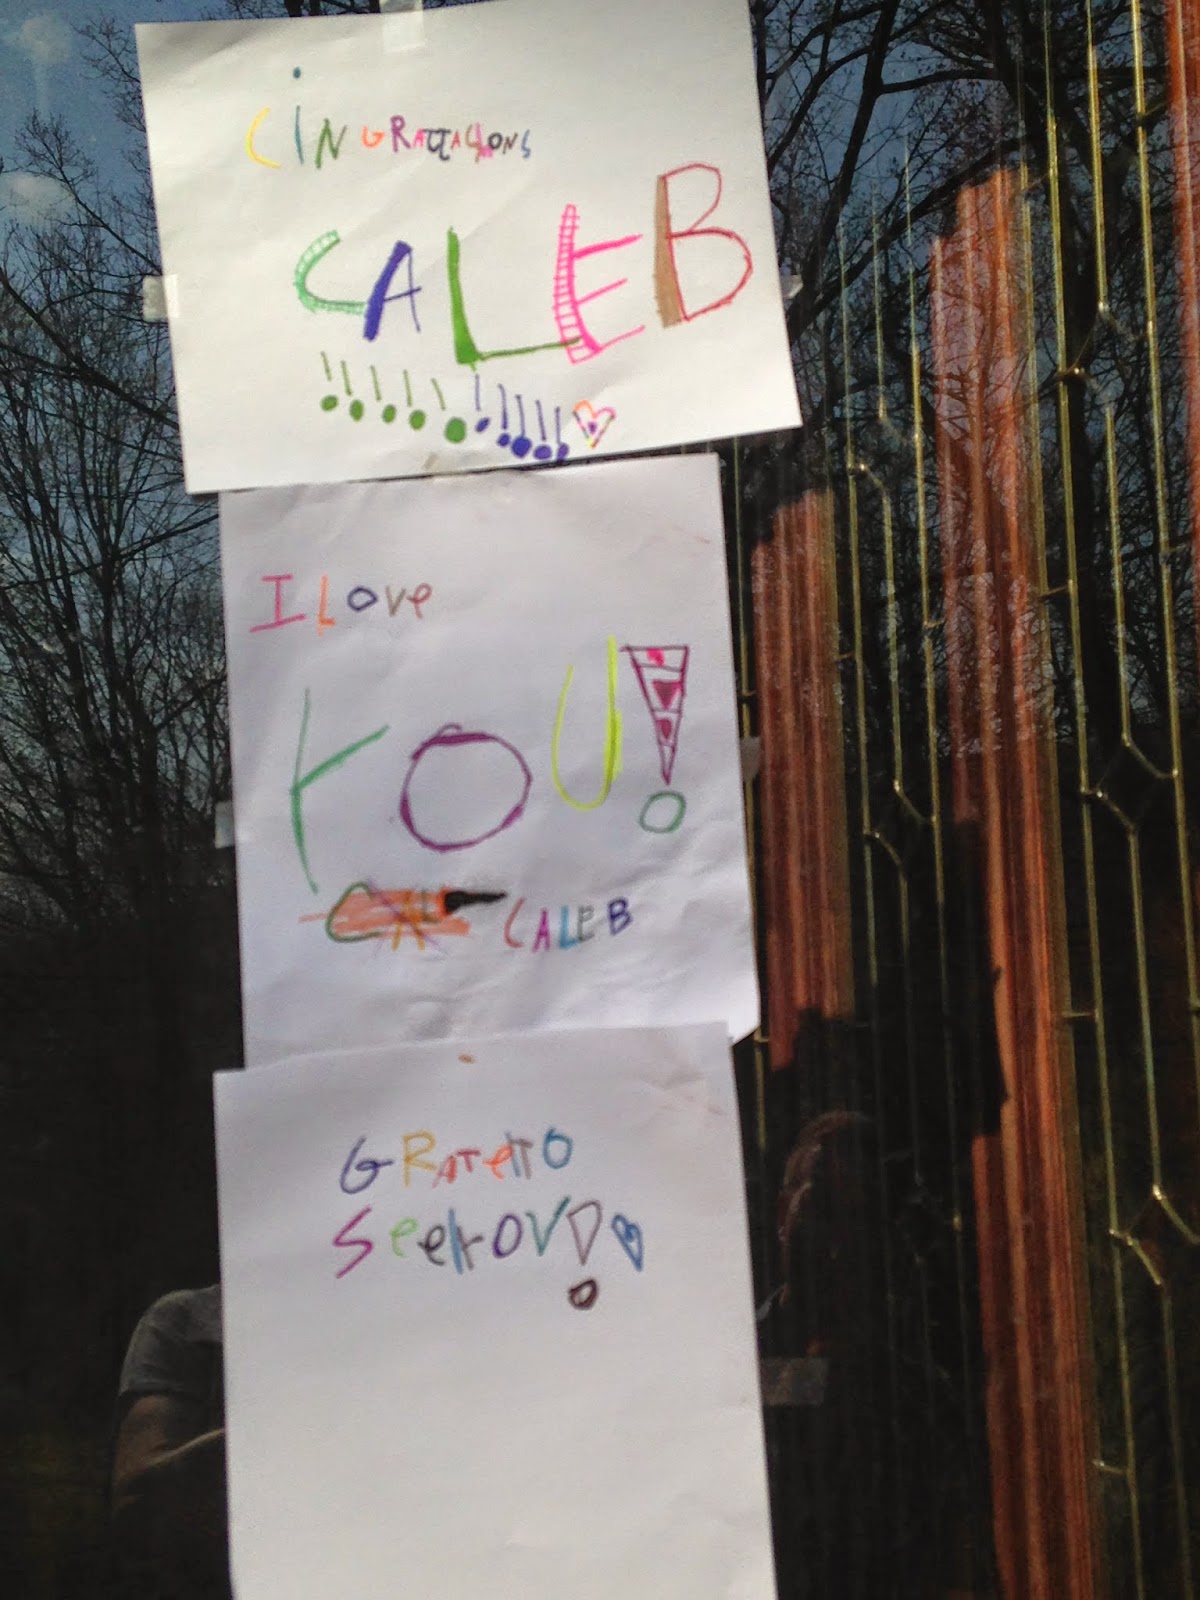 CiNGRATTAShONS
CALEB
!!!!!!!!!!
I Love
YOU!
CALEB
GRATeTTO
SeeYOV!